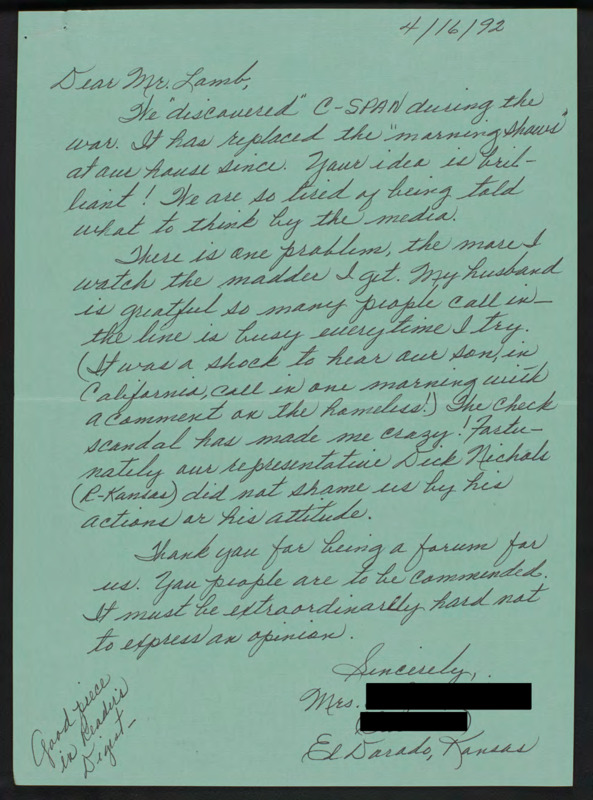 4/16/92
Dear Mr. Lamb,
We "discovered" C-SPAN during the
war. It has replaced the "morning shows"
at our house since. Your idea is bril-
liant! We are so tired of being told
what to think by the media.
There is one problem, the more I
watch the madder I get. My husband
is greatful so many people call in—
the line is busy everytime I try.
(It was a shock to hear our son, in
California, call in one morning with
a comment on the homeless!) The check
scandal has made me crazy! Fortu-
nately our representative Dick Nichols
(R-Kansas) did not shame us by his
actions or his attitude.
Thank you for being a forum for
us. You people are to be commended.
It must be extraordinarily hard not
to express an opinion.
Sincerely,
Mrs.
El Dorado, Kansas
Good piece
in Reader's
Digest—